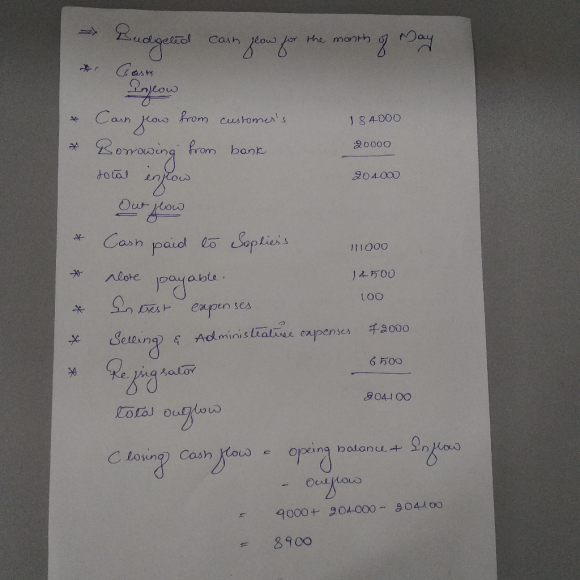 ⇒ Budgeted cash flow for the month of May
* Cash
Inflow
* Cash flow from customer's 184000
* Borrowing from bank 20000
total inflow 204000
Out flow
* Cash paid to Suplier's 111000
* Note payable. 14500
* Intrest expenses 100
* Selling & Administrative expenses 72000
* Refrigrator 6500
total outflow 204100
Closing Cash flow = opeing balance + Inflow
- outflow
= 9000 + 204000 - 204100
= 8900